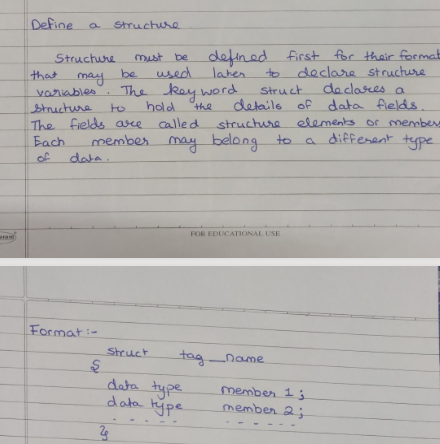 Define a structure
Structure must be defined first for their format
that may be used later to declare structure
variables. The keyword struct declares a
structure to hold the details of data fields.
The fields are called structure elements or member
Each member may belong to a different type
of data.
FOR EDUCATIONAL USE
Format:-
struct tag_name
{
data type member 1;
data type member 2;
- - - - - - - - - - -
};